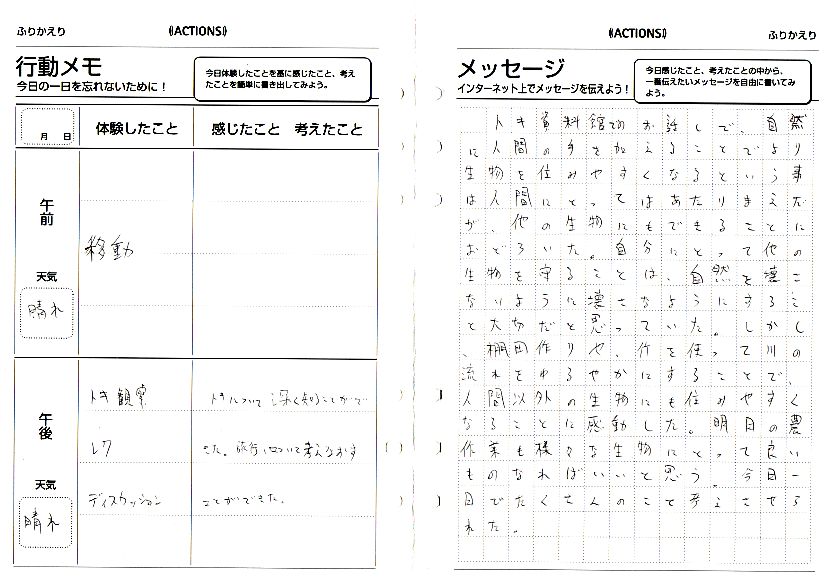 ふりかえり
《ACTIONS》
行動メモ
今日の一日を忘れないために！
今日体験したことを基に感じたこと、考え
たことを簡単に書き出してみよう。
月 日
体験したこと
感じたこと 考えたこと
午前
移動
天気
晴れ
午後
トキ観察
トキについて深く知ることがで
レク
きた。旅行について考えなおす
天気
ディスカッション
ことができた。
晴れ
《ACTIONS》
ふりかえり
メッセージ
インターネット上でメッセージを伝えよう！
今日感じたこと、考えたことの中から、
一番伝えたいメッセージを自由に書いてみ
よう。
トキ資料館でのお話しで、自然
に人間の手を加えることでより
生物を住みやすくなるという事
は人間にとってはあたりまえだ
が、他の生物にもできることに
おどろいた。自分にとって他の
生物を守ることは、自然を壊さ
ないように壊さなようにするこ
と大切だと思っていた。しかし
、棚田作りや、竹を使って川の
流れをゆるやかにすることで、
人間以外の生物にも住みやすく
なることに感動した。明日の農
作業も様々な生物にとって良い
ものなればいいと思う。今日一
日でたくさんのこと考えさせら
れた。